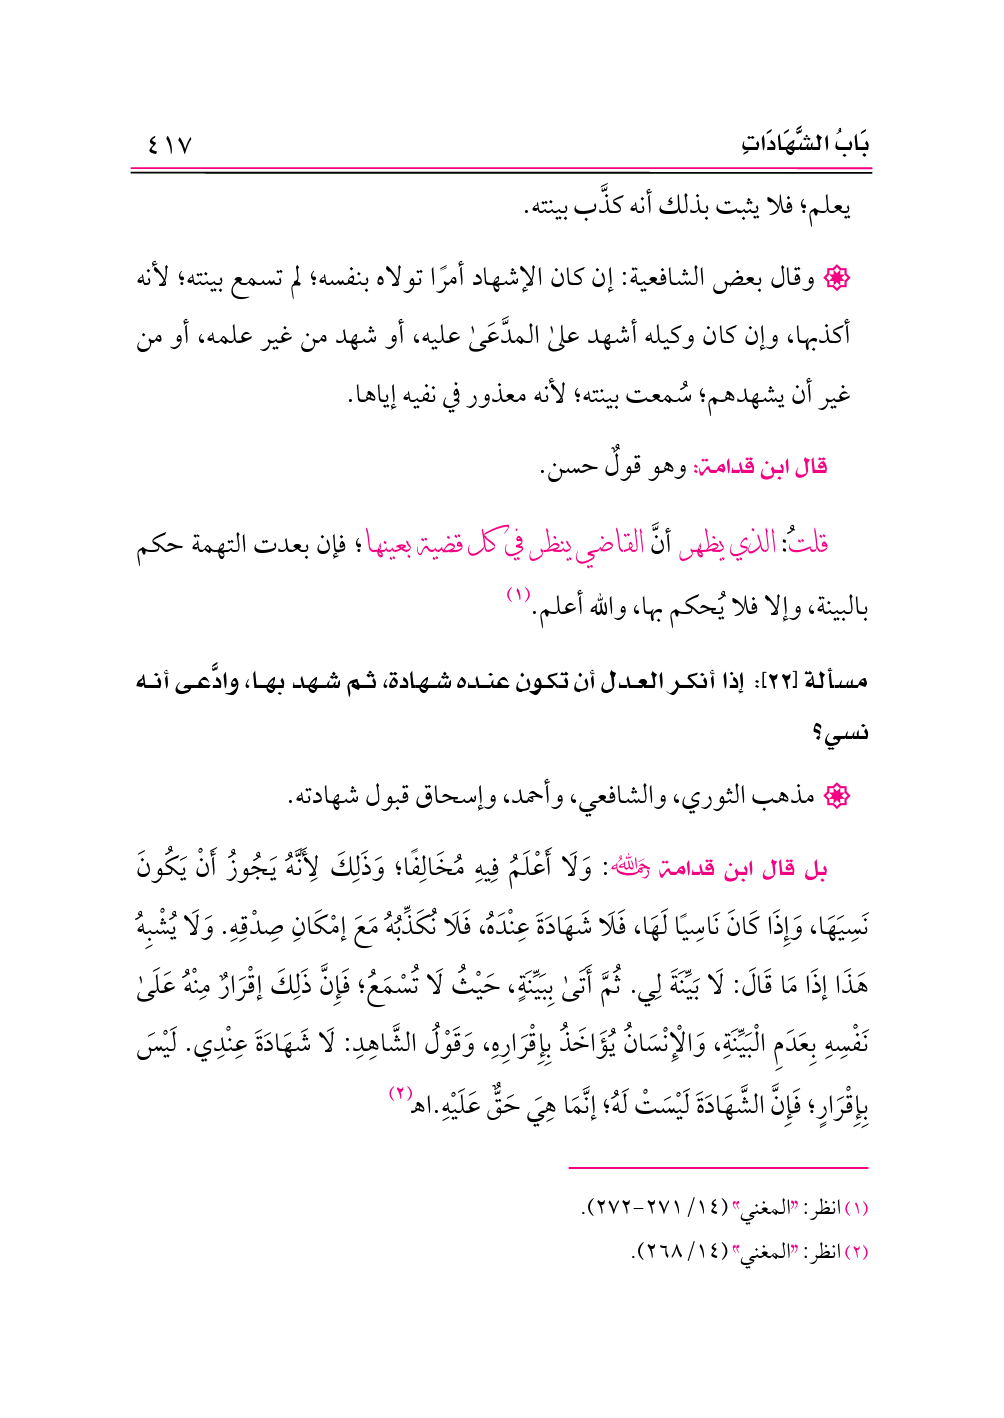 بَابُ الشَّهَادَاتِ ٤١٧
يعلم؛ فلا يثبت بذلك أنه كذَّب بينته.
وقال بعض الشافعية: إن كان الإشهاد أمرًا تولاه بنفسه؛ لم تسمع بينته؛ لأنه
أكذبها، وإن كان وكيله أشهد علىٰ المدَّعَىٰ عليه، أو شهد من غير علمه، أو من
غير أن يشهدهم؛ سُمعت بينته؛ لأنه معذور في نفيه إياها.
قال ابن قدامة: وهو قولٌ حسن.
قلتُ: الذي يظهر أنَّ القاضي ينظر في كل قضية بعينها؛ فإن بعدت التهمة حكم
بالبينة، وإلا فلا يُحكم بها، والله أعلم.(١)
مسألة [٢٢]: إذا أنكر العدل أن تكون عنده شهادة، ثم شهد بها، وادَّعى أنه
نسي؟
مذهب الثوري، والشافعي، وأحمد، وإسحاق قبول شهادته.
بل قال ابن قدامة رحمه الله: وَلَا أَعْلَمُ فِيهِ مُخَالِفًا؛ وَذَلِكَ لِأَنَّهُ يَجُوزُ أَنْ يَكُونَ
نَسِيَهَا، وَإِذَا كَانَ نَاسِيًا لَهَا، فَلَا شَهَادَةَ عِنْدَهُ، فَلَا نُكَذِّبُهُ مَعَ إمْكَانِ صِدْقِهِ. وَلَا يُشْبِهُ
هَذَا إذَا مَا قَالَ: لَا بَيِّنَةَ لِي. ثُمَّ أَتَىٰ بِبَيِّنَةٍ، حَيْثُ لَا تُسْمَعُ؛ فَإِنَّ ذَلِكَ إقْرَارٌ مِنْهُ عَلَىٰ
نَفْسِهِ بِعَدَمِ الْبَيِّنَةِ، وَالْإِنْسَانُ يُؤَاخَذُ بِإِقْرَارِهِ، وَقَوْلُ الشَّاهِدِ: لَا شَهَادَةَ عِنْدِي. لَيْسَ
بِإِقْرَارٍ؛ فَإِنَّ الشَّهَادَةَ لَيْسَتْ لَهُ؛ إنَّمَا هِيَ حَقٌّ عَلَيْهِ.اهـ(٢)
(١) انظر: "المغني" (١٤/ ٢٧١-٢٧٢).
(٢) انظر: "المغني" (١٤/ ٢٦٨).